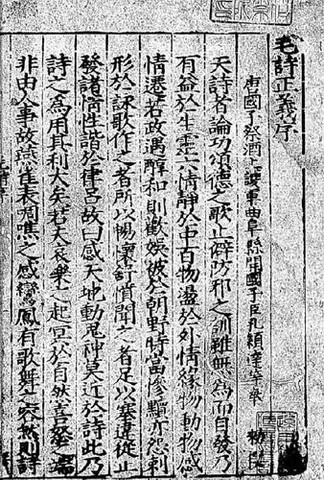 毛詩正義序
唐國子祭酒上護軍曲阜縣開國子臣孔穎達等奉
夫詩者論功頌德之歌止僻防邪之訓雖無為而自發乃
有益於生靈六情靜於中百物盪於外情緣物動物感
情遷若政遇醇和則歡娛被於朝野時當慘黷亦怨刺
形於詠歌作之者所以暢懷舒憤聞之者足以塞違從止
發諸情性諧於律呂故曰感天地動鬼神莫近於詩此乃
詩之為用其利大矣若夫哀樂之起冥於自然喜怒之端
非由人事故燕雀表啁噍之感鸞鳳有歌舞之容然則詩